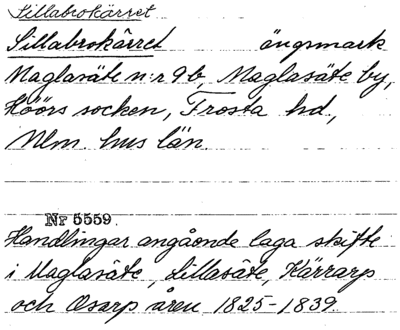 Sillabrokärret
Sillabrokärret ängsmark
Maglasäte n:r 9b, Maglasäte by,
Höörs socken, Frosta hd,
Mlm. hus län.
Nr 5559.
Handlingar angående laga skifte
i Maglasäte, Lillasäte, Kärrarp
och Osarp åren 1825-1839.